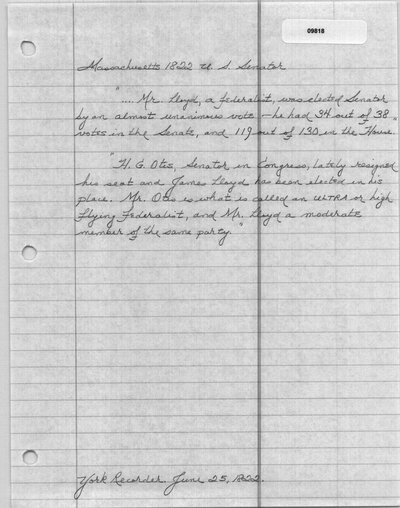 09818
Massachusetts 1822 U. S. Senator
".... Mr. Lloyd, a federalist, was elected Senator
by an almost unanimous vote - he had 34 out of 38
votes in the Senate, and 119 out of 130 in the House."
"H. G. Otis, Senator in Congress, lately resigned
his seat and James Lloyd has been elected in his
place. Mr. Otis is what is called an ULTRA or high
flying Federalist, and Mr. Lloyd a moderate
member of the same party."
York Recorder. June 25, 1822.